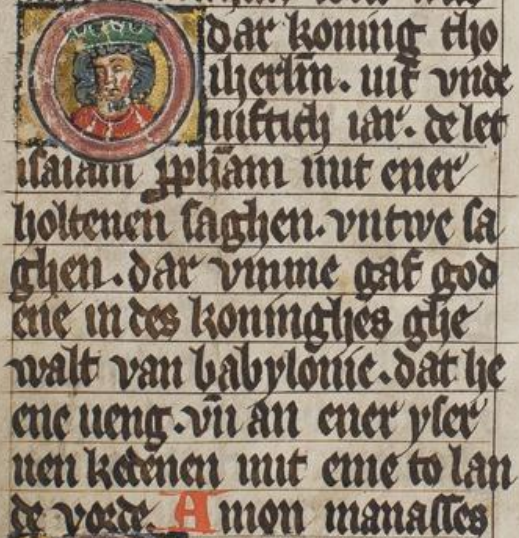 dar koning tho
iherlm̄. uif vnde
uiftich iar. de let
isaiam ꝓpham̄ mit ener
holtenen saghen. vntwe sa
ghen. dar vmme gaf god
ene in des koninghes ghe
walt van babylonie. dat he
ene ueng. vn̄ an ener yser
nen kedenen mit eme to lan
de vorde. Amon manasses